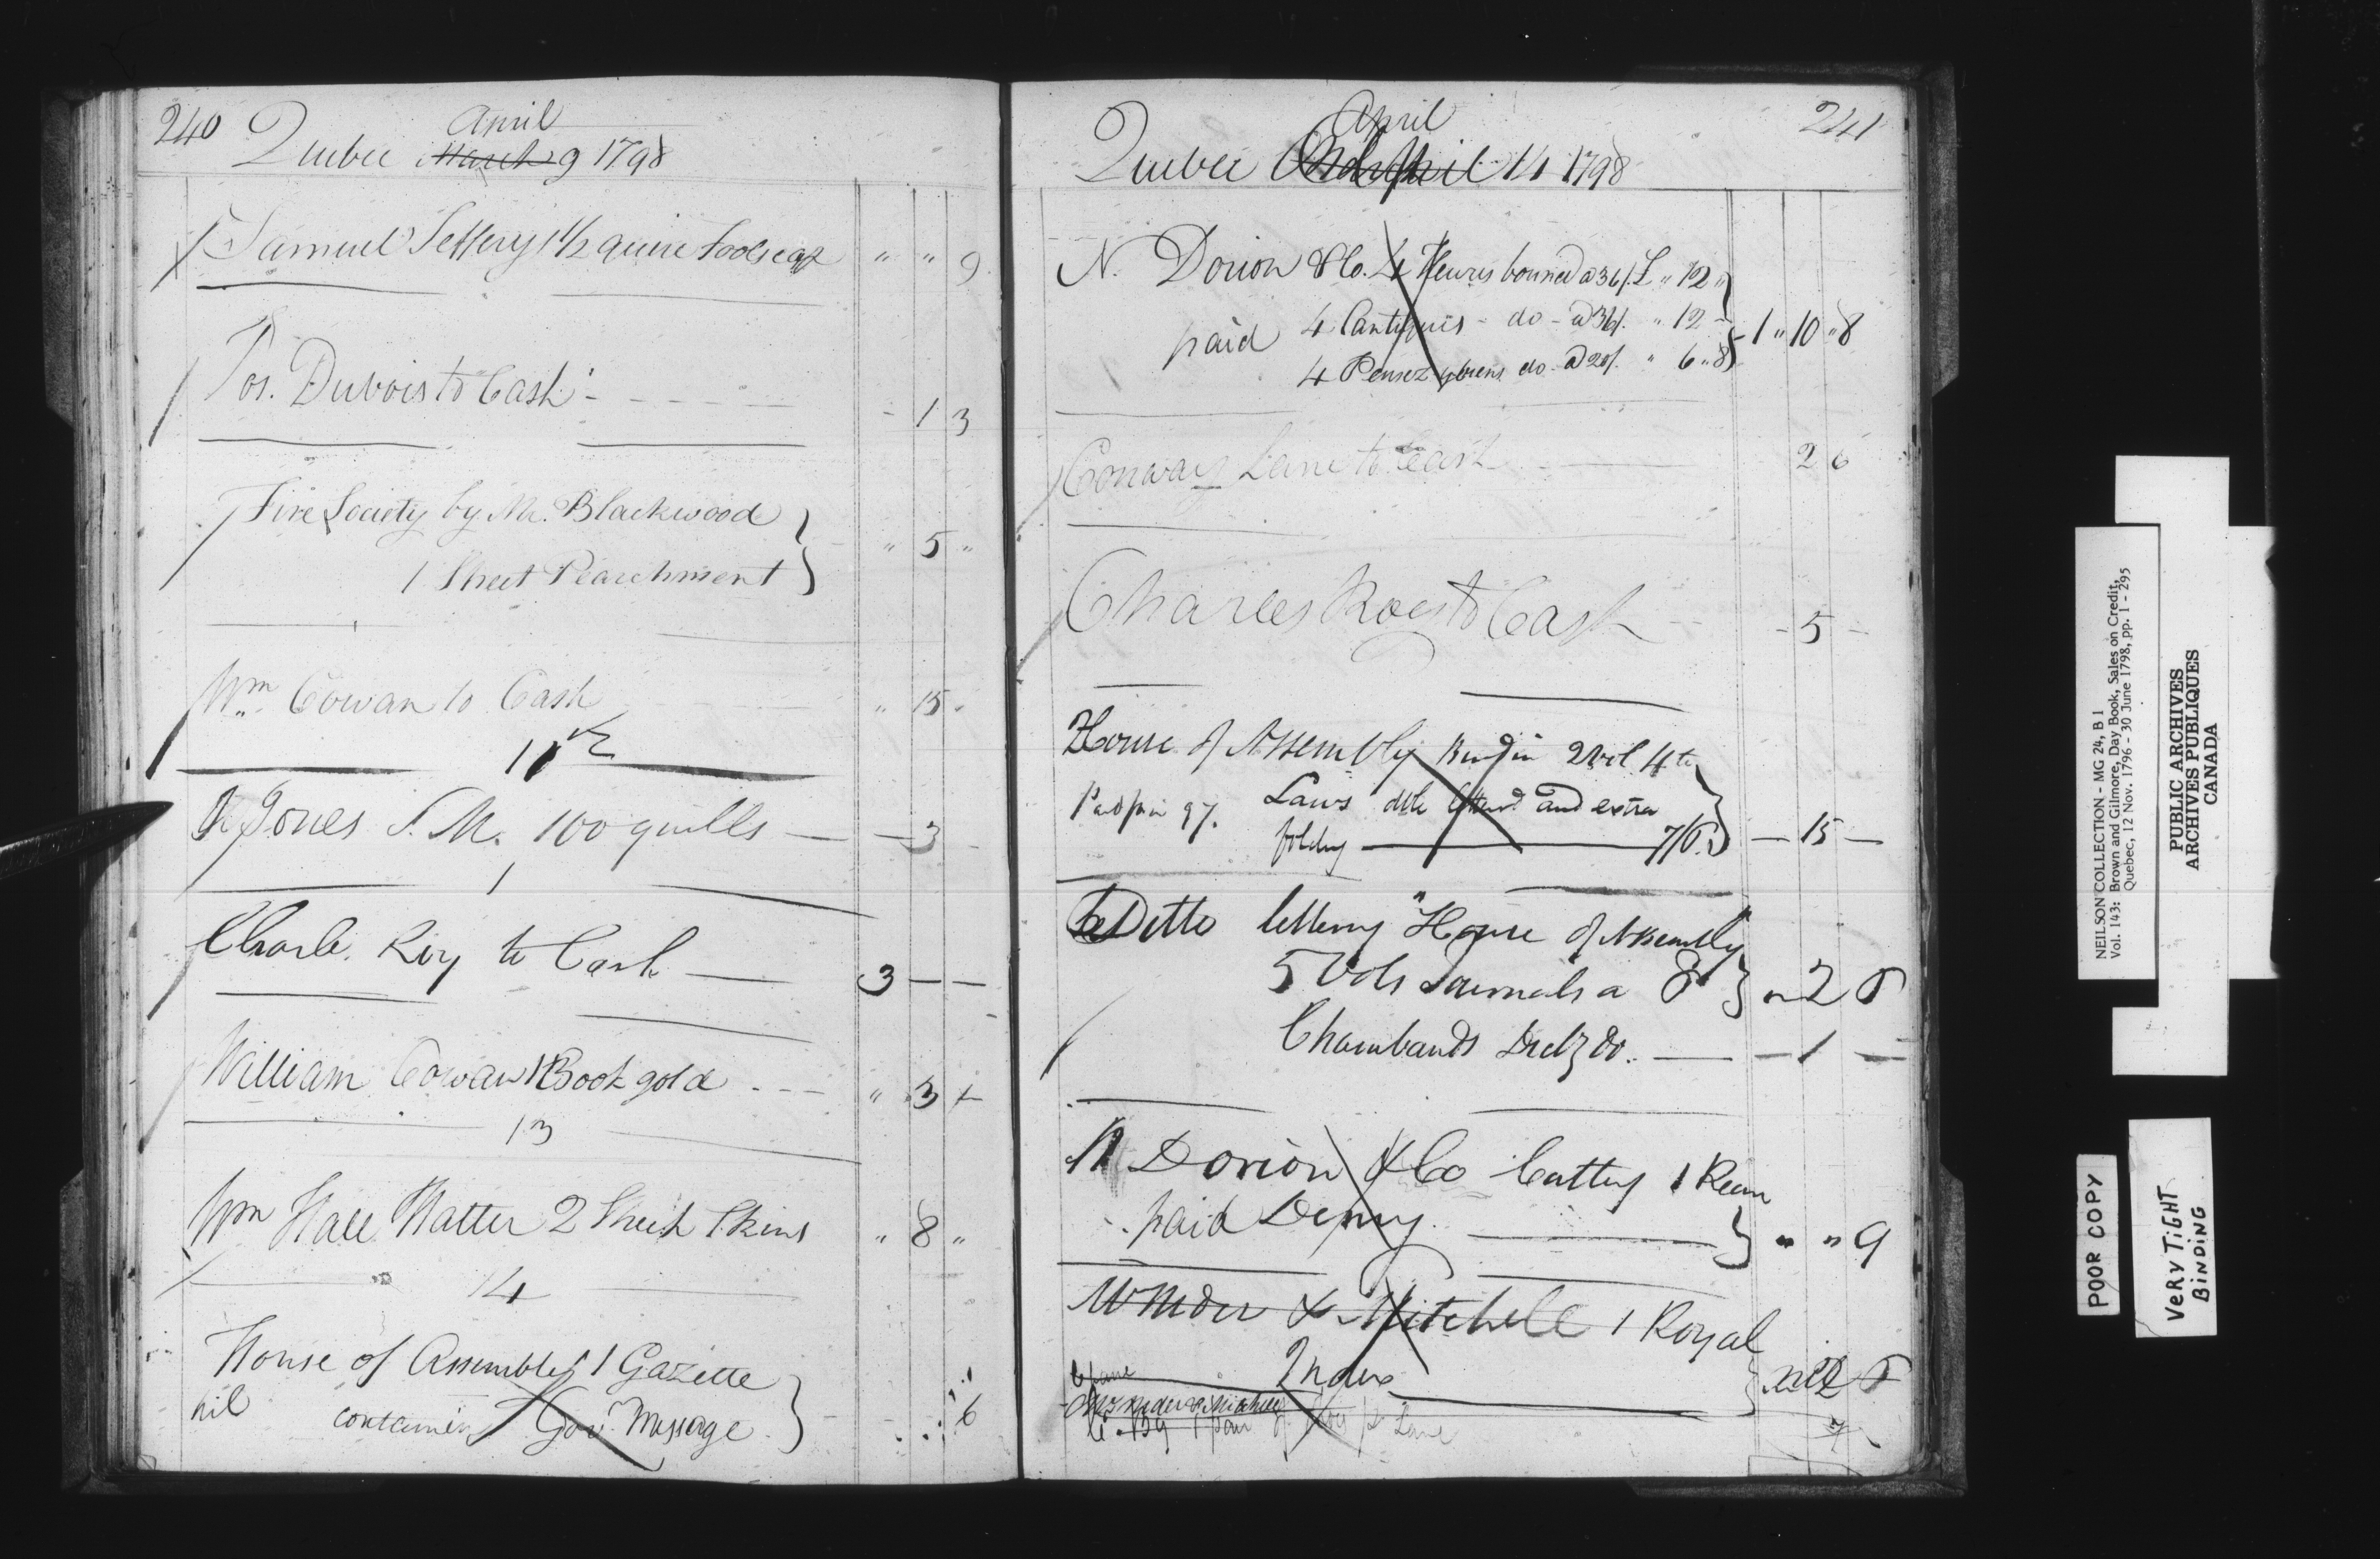 240 Quebec March April 9 1798
Samuel Jeffery 1 1/2 quire Foolscap " " 9
Jos. Dubois to Cash - 1 3
Fire Society by Mr. Blackwood
1 Sheet Pearchment } " 5 "
Wm Cowan to Cash " 15 "
11th
Jones S. M. 100 quills — — 3 -
Charle Roy to Cash — 3 — —
William Cowan 1 Book gold - - - " 3 -
13
Wm Hall Hatter 2 Sheep Skins " 8 "
14
House of Assembly 1 Gazette
nil containing Gov. Message } 6
241
April
Quebec 14 1798
N. Dorion & Co. 4 Heures bound a 36/. £ " 12 "
paid 4 Cantiques - do - a 36/. " 12 - } 1 " 10 " 8
4 Pensez y biens do. a 20/. " 6 " 8
Conway Lane to Cash 2 6
Charles Roy to Cash - 5 -
House of Assembly 2 vol 4to
Laws and extra
folding — 7/6. } — 15 —
Ditto lettering "House of Assembly"
5 Vols Journals a 6 } 2 6
Do. — — 1 —
N Dorion & Co Cutting 1 Ream
paid Demy. — } " " 9
& Mitchell 1 Royal
Index — 6
1 pair Lane 7
NEILSON COLLECTION - MG 24, B 1
Vol. 143: Brown and Gilmore, Day Book, Sales on Credit,
Quebec, 12 Nov. 1796 - 30 June 1798, pp. 1 - 295
PUBLIC ARCHIVES
ARCHIVES PUBLIQUES
CANADA
POOR COPY
VERY TIGHT
BINDING